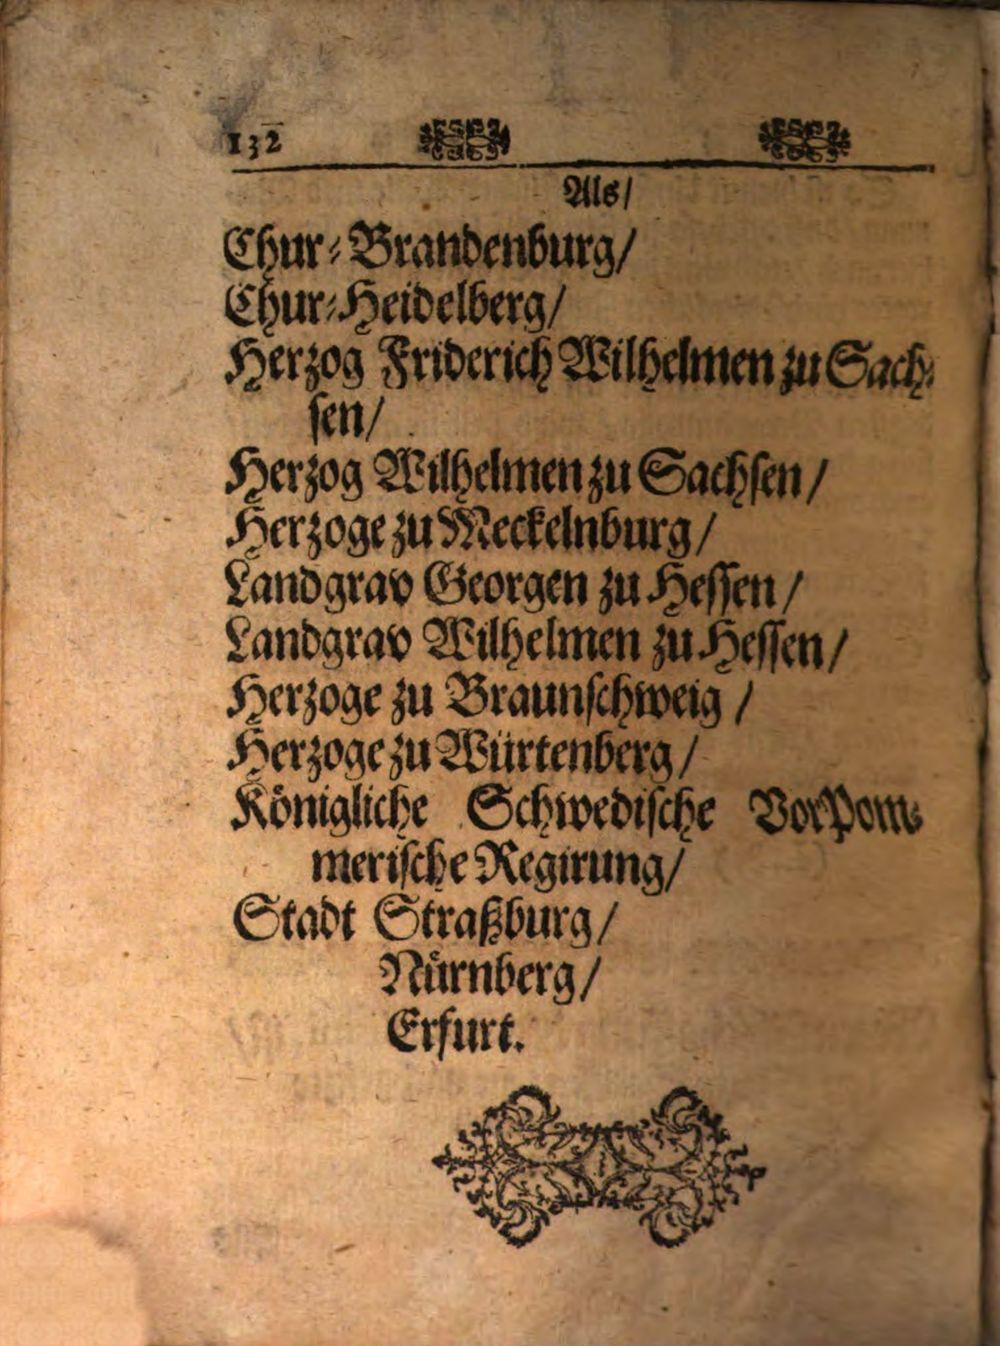 132
Als/
Chur⸗Brandenburg/
Chur⸗Heidelberg/
Herzog Friderich Wilhelmen zu Sach⸗
ſen/
Herzog Wilhelmen zu Sachſen/
Herzoge zu Meckelnburg/
Landgrav Georgen zu Heſſen/
Landgrav Wilhelmen zu Heſſen/
Herzoge zu Braunſchweig/
Herzoge zu Würtenberg/
Königliche Schwediſche VorPom⸗
meriſche Regirung/
Stadt Straßburg/
Nürnberg/
Erfurt.